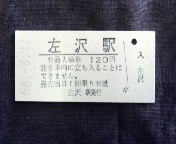 左沢駅
普通入場券 120円
旅客車内に立ち入ることは
できません。
発売当日1回限り有効
左沢 駅発行
入
左沢